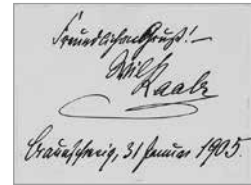 Freundlichen Gruß! —
Wilh
Raabe
Braunschweig, 31 Januar 1905.